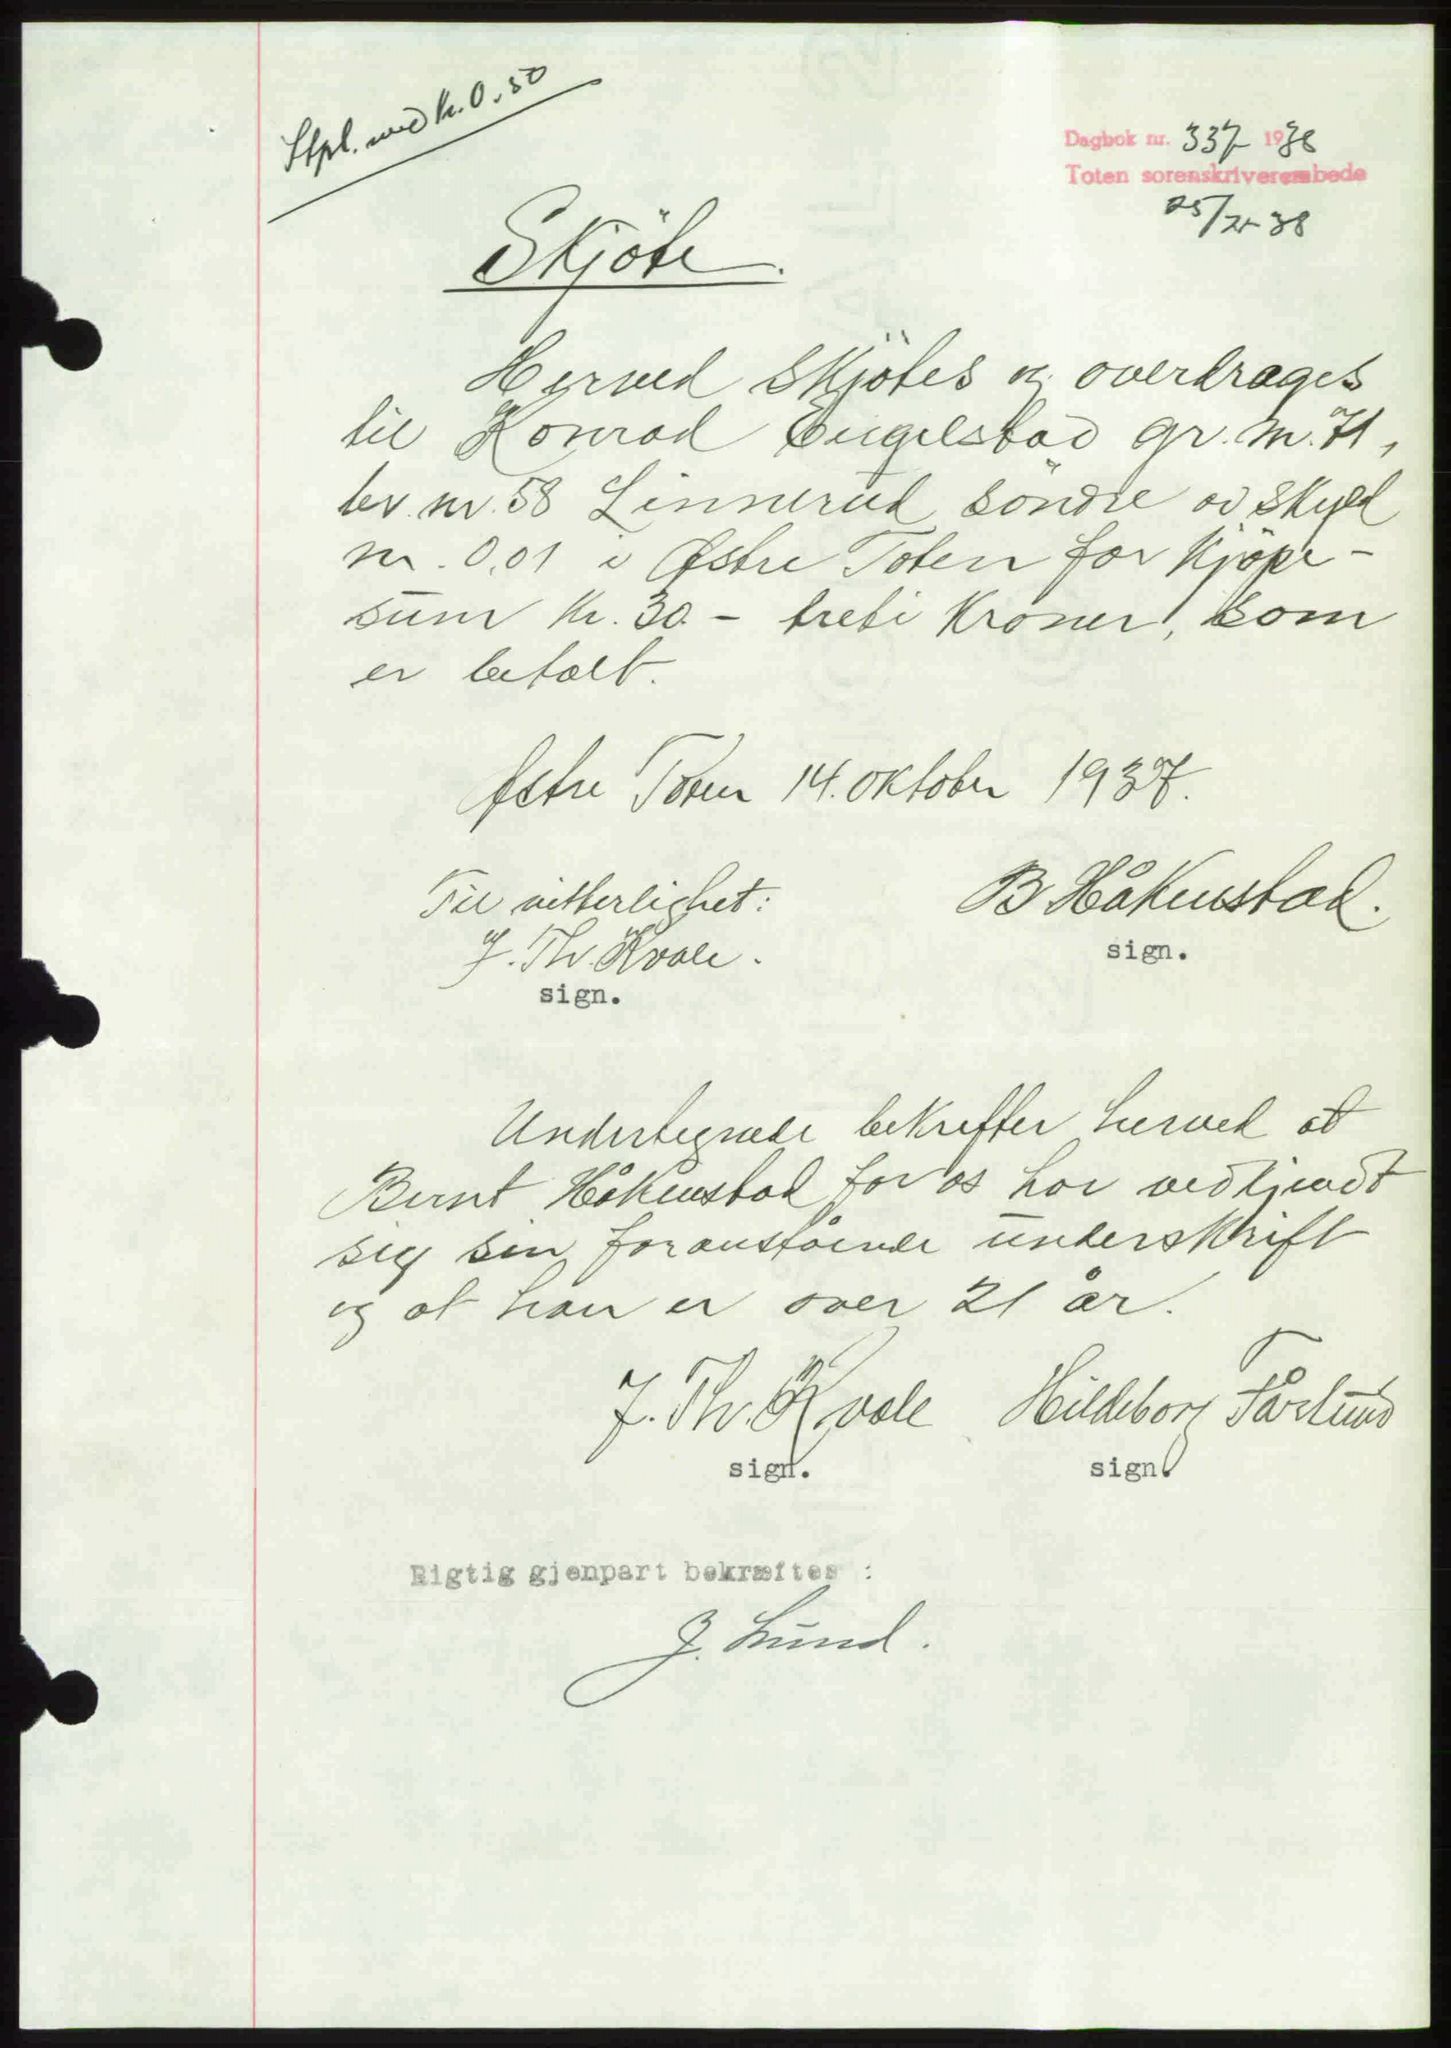 Stpl. med kr. 0,50
Dagbok nr. 337 1938
Toten sorenskriverembede
25/2-38
Skjöte.
Herved skjötes og overdrages
til Konrad Engelstad gr. nr. 71,
br. nr. 58 Linnerud söndre av skyld
mr. 0,01 i Östre Toten for kjöpe-
sum kr. 30 - treti kroner, som
er betalt.
Östre Toten 14. oktober 1937.
Til vitterlighet:
B Håkenstad.
sign.
J. Th. Kvale.
sign.
Undertegnede bekrefter herved at
Bernt Håkenstad for os har vedkjendt
sig sin foranstående underskrift
og at han er over 21 år.
J. Th. Kvale Hildeborg Fårlund
sign. sign.
Rigtig gjenpart bekræftes :
J. Lund.